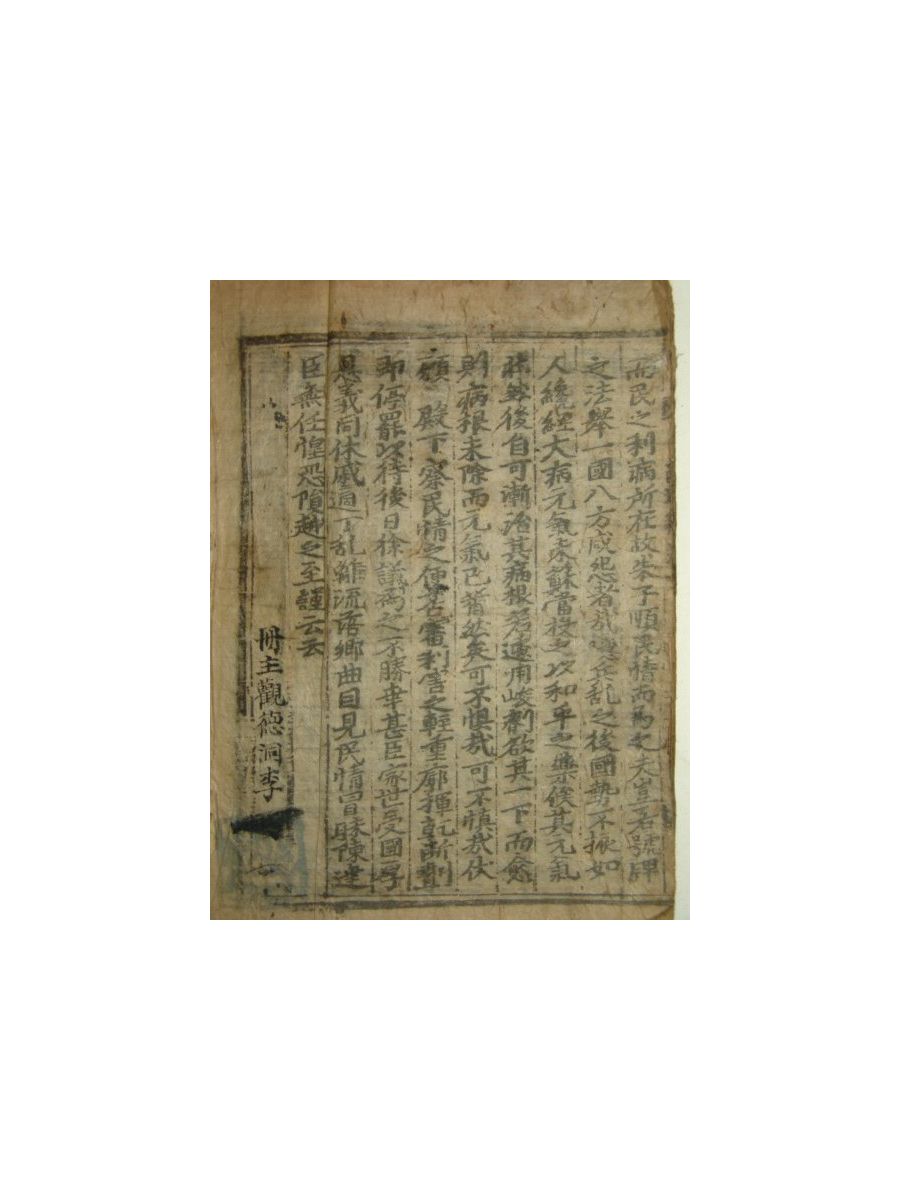 而民之利病所在故朱子順民情而為之夫豈若號牌
之法舉一國八方咸怨者哉兵乱之後國勢不振如
人纔經大病元氣未蘇當投之以和平之藥俟其元氣
旺然後自可漸治其病根若遽用峻劑欲其一下而愈
則病根未除而元氣已薾然矣可不惧哉可不慎哉伏
願 殿下察民情之便否審利害之輕重廓揮乾斷劃
即停罷以待後日徐議為之不勝幸甚臣家世受國厚
恩義同休戚適丁乱離流落鄉曲目見民情冒昧陳達
臣無任惶恐隕越之至謹云云
冊主觀德洞李